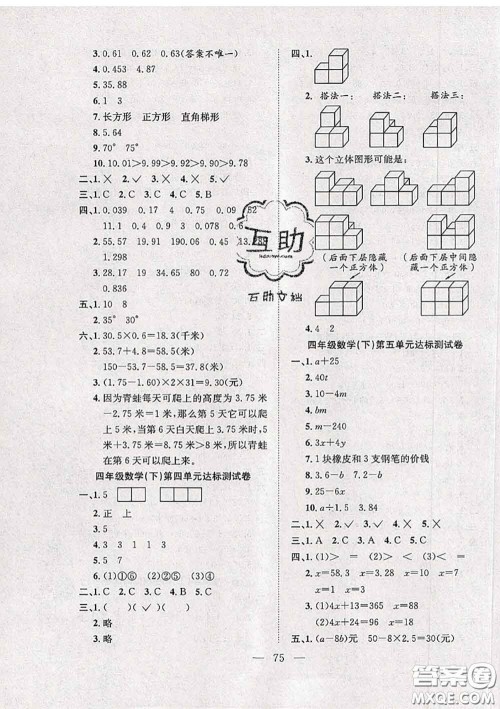 3. 0.61　0.63　0.62(答案不唯一)
4. 0.453　4.87
5. 3.88
6. 1　3
7. 长方形　正方形　直角梯形
8. 5.64
9. 70°　75°
10. 10.01＞9.99＞9.92＞9.90＞9.78
二、1. ╳　2. ✓　3. ╳　4. ╳　5. ✓
三、1. C　2. C　3. C　4. C　5. B
四、1. 0.039　0.17　4　0.75　0.09
0.18　0.34　1
2. 55.57　19.91　190.06　13.288
1.298
3. 28.17　19　34.65　80　80
10.8　0.85
五、1. 略
2. 35°　30°
六、1. 30.5×0.6=18.3(千米)
2. 53.7+4.8=58.5(米)
150-53.7-58.5=37.8(米)
3. (1.75-1.60)×2×31=9.30(元)
4. 因为青蛙每天可爬上的高度为 3.75 米
-2.75 米=1 米,那么第 5 天它可以爬
上 5 米,当第 6 天爬上 3.75 米时,5
米+3.75 米=8.75 米>8 米,所以青蛙
在第 6 天可以爬上来。
四年级数学(下)第四单元达标测试卷
一、1. 5
2. 正　上
3. 5
4. 3　3　1　1　3
5. 5
6. (1)①⑥　(2)②⑤　(3)③④
二、1. C　2. C　3. B　4. C　5. C
三、1. (　)(✓)(　)
2. 略
3. 略
四、1.
2. 搭法一：　搭法二：　搭法三：
3. 这个立体图形可能是：
(后面下层隐藏一个正方体)
(后面下层中间隐藏一个正方体)
4. 4　2
四年级数学(下)第五单元达标测试卷
一、1. a+25
2. 40t
3. 4x
4. bm
5. m-240
6. 4a
7. 1 块橡皮和 3 支钢笔的价钱
8. 3.6-b　7.2
9. 3x-6
10. a+1.5　3.84
二、1. ╳　2. ╳　3. ✓　4. ╳　5. ╳
三、1. A　2. C　3. D　4. C　5. B
四、1. (1)＞　(2)＝　(3)＜　(4)＞
2. x=58.3　x=10.8　x=4
x=1　x=3
3. (1)4x+13=365　x=88
(2)4x-2x=24　x=12
五、1. (a-8b)元　50-8×2.5=30(元)
75
互助
互助文档
答案圈
MXQE.COM